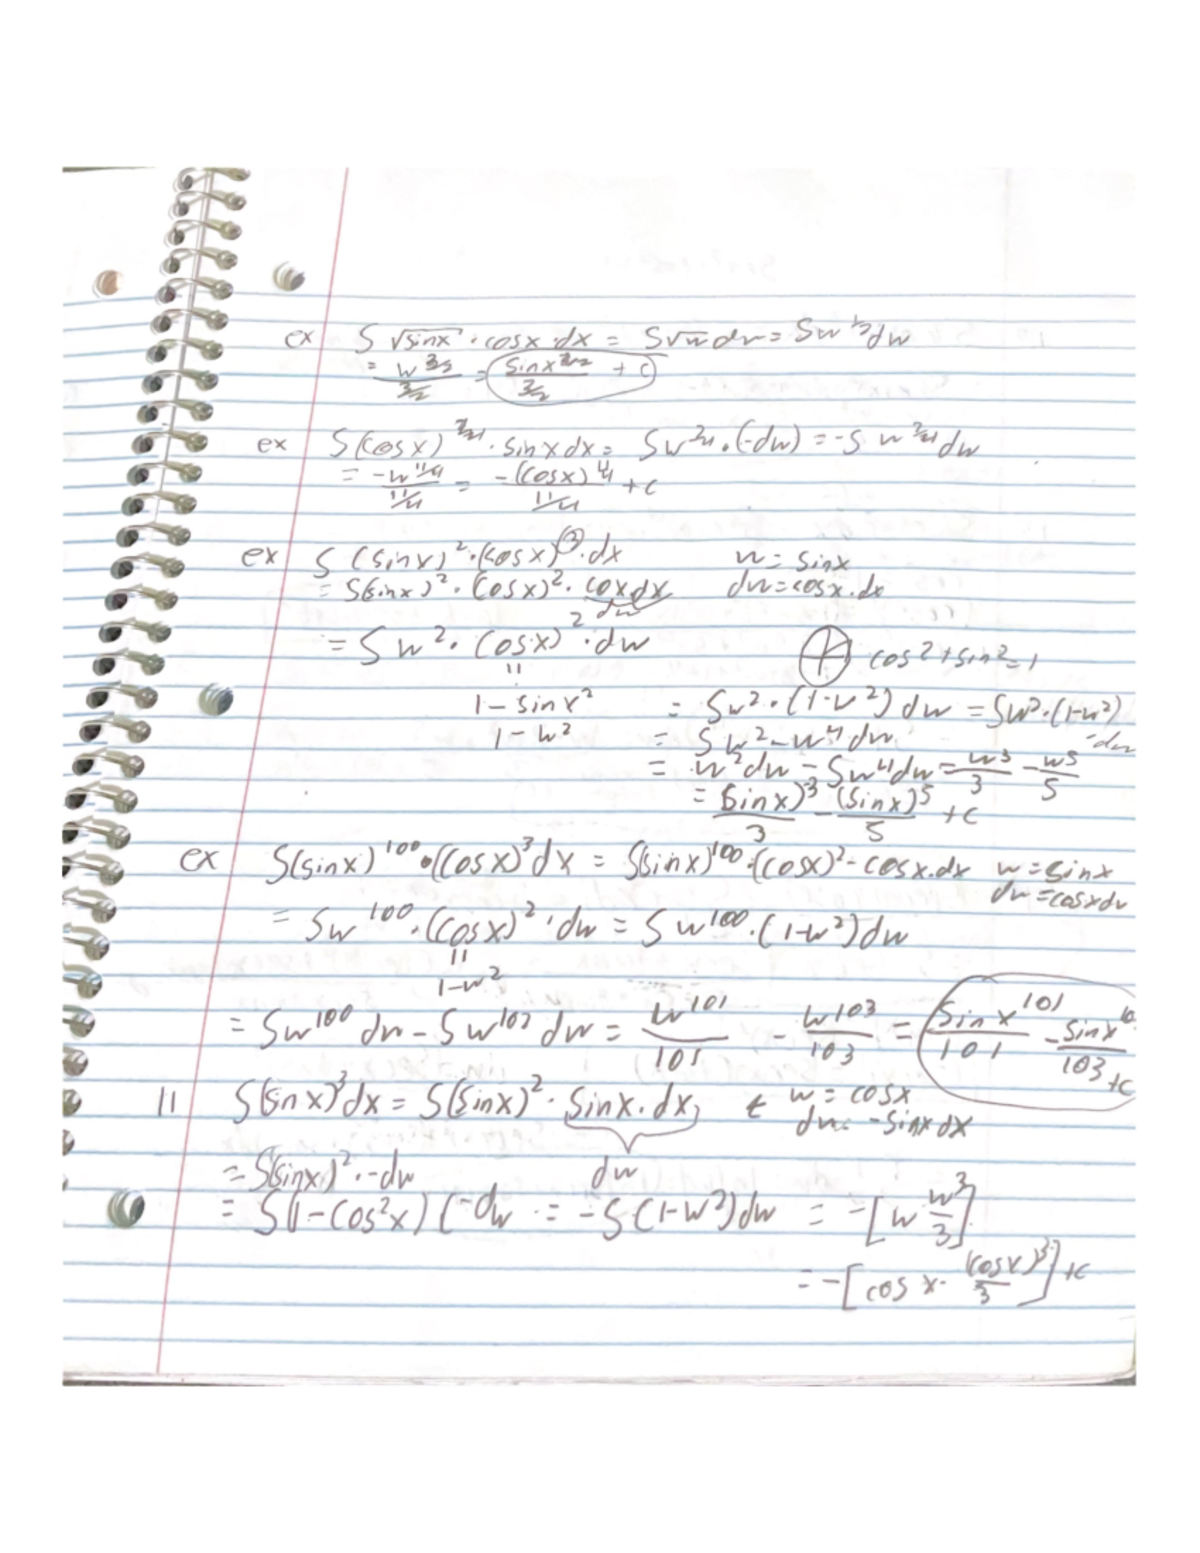 ex S √sinx · cosx · dx = S√w dw = Sw^1/2 dw
= w^3/2 / 3/2 = sinx^3/2 / 3/2 + C
ex S(cosx)^7/4 · sinx dx = Sw^7/4 · (-dw) = -S w^7/4 dw
= -w^11/4 / 11/4 = -(cosx)^11/4 / 11/4 + c
ex S (sinx)^2 · (cosx)^3 · dx w = sinx
= S(sinx)^2 · (cosx)^2 · cox dx dw = cosx · dx
dw
= S w^2 · (cosx)^2 · dw cos^2 + sin^2 = 1
"
1 - sinx^2 = Sw^2 · (1-w^2) dw = Sw^2 · (1-w^2)
1 - w^2 = Sw^2 - w^4 dw -dw
= w^2 dw - Sw^4 dw = w^3/3 - w^5/5
= (sinx)^3/3 - (sinx)^5/5 + c
ex S(sinx)^100 · (cosx)^3 dx = S(sinx)^100 · (cosx)^2 - cosx.dx w = sinx
dw = cosxdx
= Sw^100 · (cosx)^2 · dw = S w^100 · (1-w^2) dw
"
1-w^2
= Sw^100 dw - Sw^102 dw = w^101/101 - w^103/103 = sinx^101/101 - sinx^10/103 + c
11 S(sinx)^3 dx = S(sinx)^2 · sinx · dx, w = cosx
dw = -sinx dx
= S(sinx)^2 · -dw dw
= S(1 - cos^2x) (-dw = -S(1-w^2) dw = -[w w^3/3]
= -[cosx - (cosx)^3/3] + c